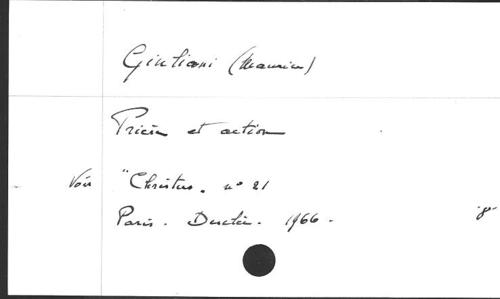 Giuliani (Maurice)
Prière et action
Voir "Christus. n° 21
Paris. Desclée. 1966.